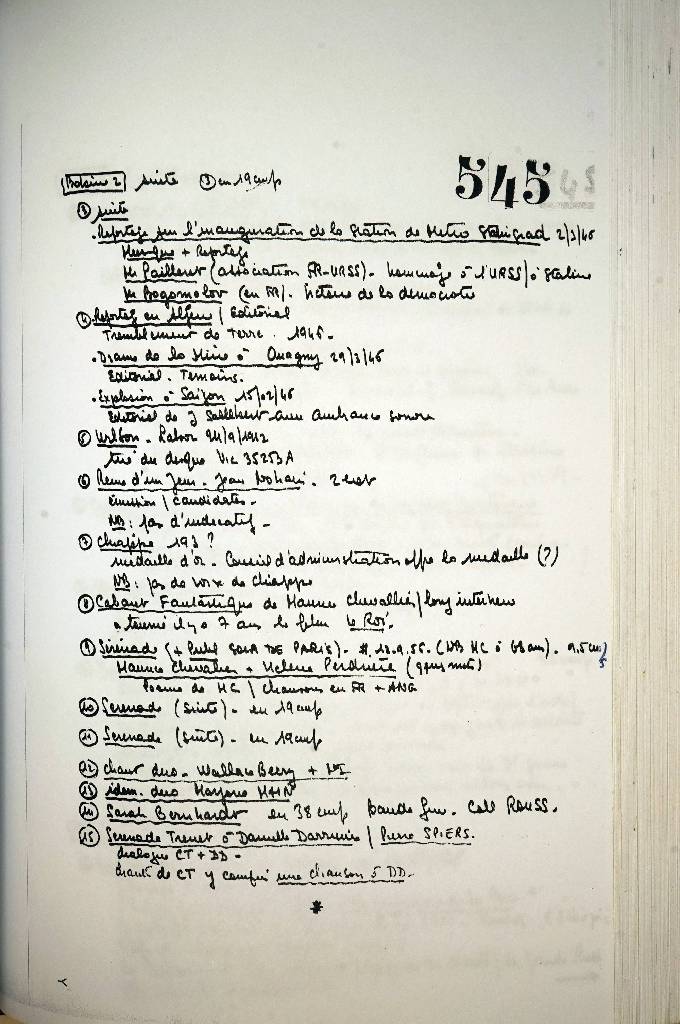 545
suite ③ en 19 cm/s
③ suite
. Reportage sur l'inauguration de la Station de Metro Stalingrad 2/3/46
Musique + Reportage
Mr Pailleret (association FR-URSS). hommage à l'URSS/à Staline
Mr Bogomolov (en FR/. Victoire de la démocratie
④ Reportage en / Editorial
Tremblement de Terre. 1946.
. Drame de la Mine à Ouagny 29/3/46
Editorial. Temoins.
. Explosion à Saïgon 15/02/46
Editorial de J Sallebert avec ambiance sonore
⑤ 24/9/1912
tiré du disque Vic 35253A
⑥ Reine d'un Jour. Jean Nohain.
émission / candidates.
NB: pas d'indicatif.
⑦ Chiappe 193?
médaille d'or. Conseil d'administration offre la médaille (?)
NB: pas de voix de Chiappe
⑧ Cabaret Fantastique de Maurice Chevallier/long interview
a tourné il y a 7 ans le film Le Roi.
⑨ Sérénade (+ Publ SOIR DE PARIS). (NB MC à 68 ans). 9,5 cm/s
Maurice Chevalier + Helene Perdrière (qques mots)
Poème de MC / chansons en FR + ANG
⑩ Serenade (suite). en 19 cm/s
⑪ Serenade (suite). en 19 cm/s
⑫ Chant duo. Wallace Beery +
⑬ idem. duo Marjorie MAIN
⑭ Sarah Bernhardt en 38 cm/s bande Coll ROUSS.
⑮ Serenade Trenet à Danielle Darrieux / Pierre SPIERS.
dialogue CT + DD.
chants de CT y compris une chanson à DD.
*